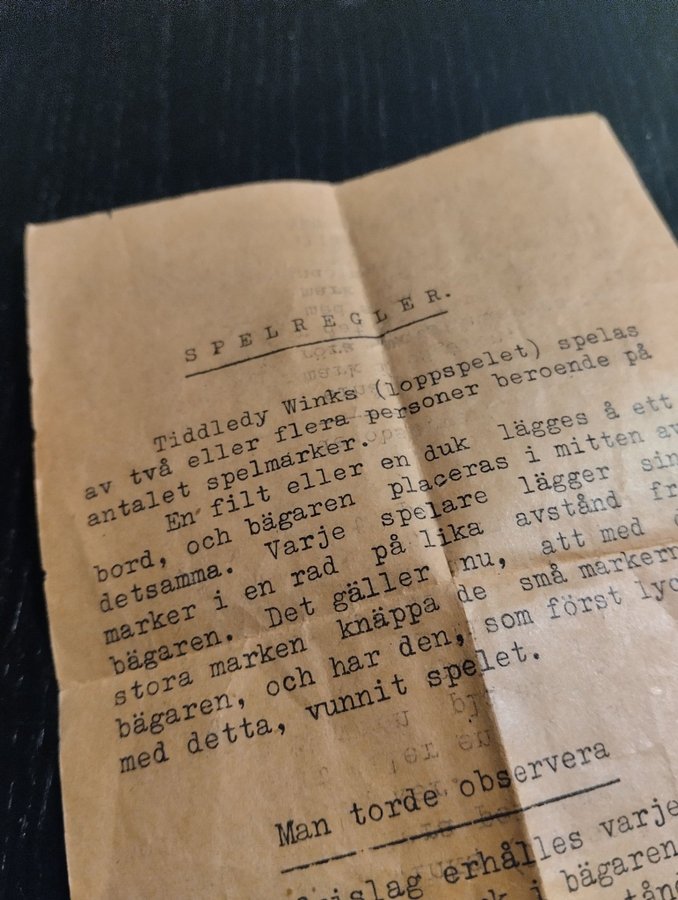 SPELREGLER.
Tiddledy Winks (loppspelet) spelas
av två eller flera personer beroende på
antalet spelmarker.
En filt eller en duk lägges å ett
bord, och bägaren placeras i mitten av
detsamma. Varje spelare lägger sin
marker i en rad på lika avstånd fr
bägaren. Det gäller nu, att med
stora marken knäppa de små markern
bägaren, och har den, som först lyc
med detta, vunnit spelet.
Man torde observera
islag erhålles varje
i bägaren